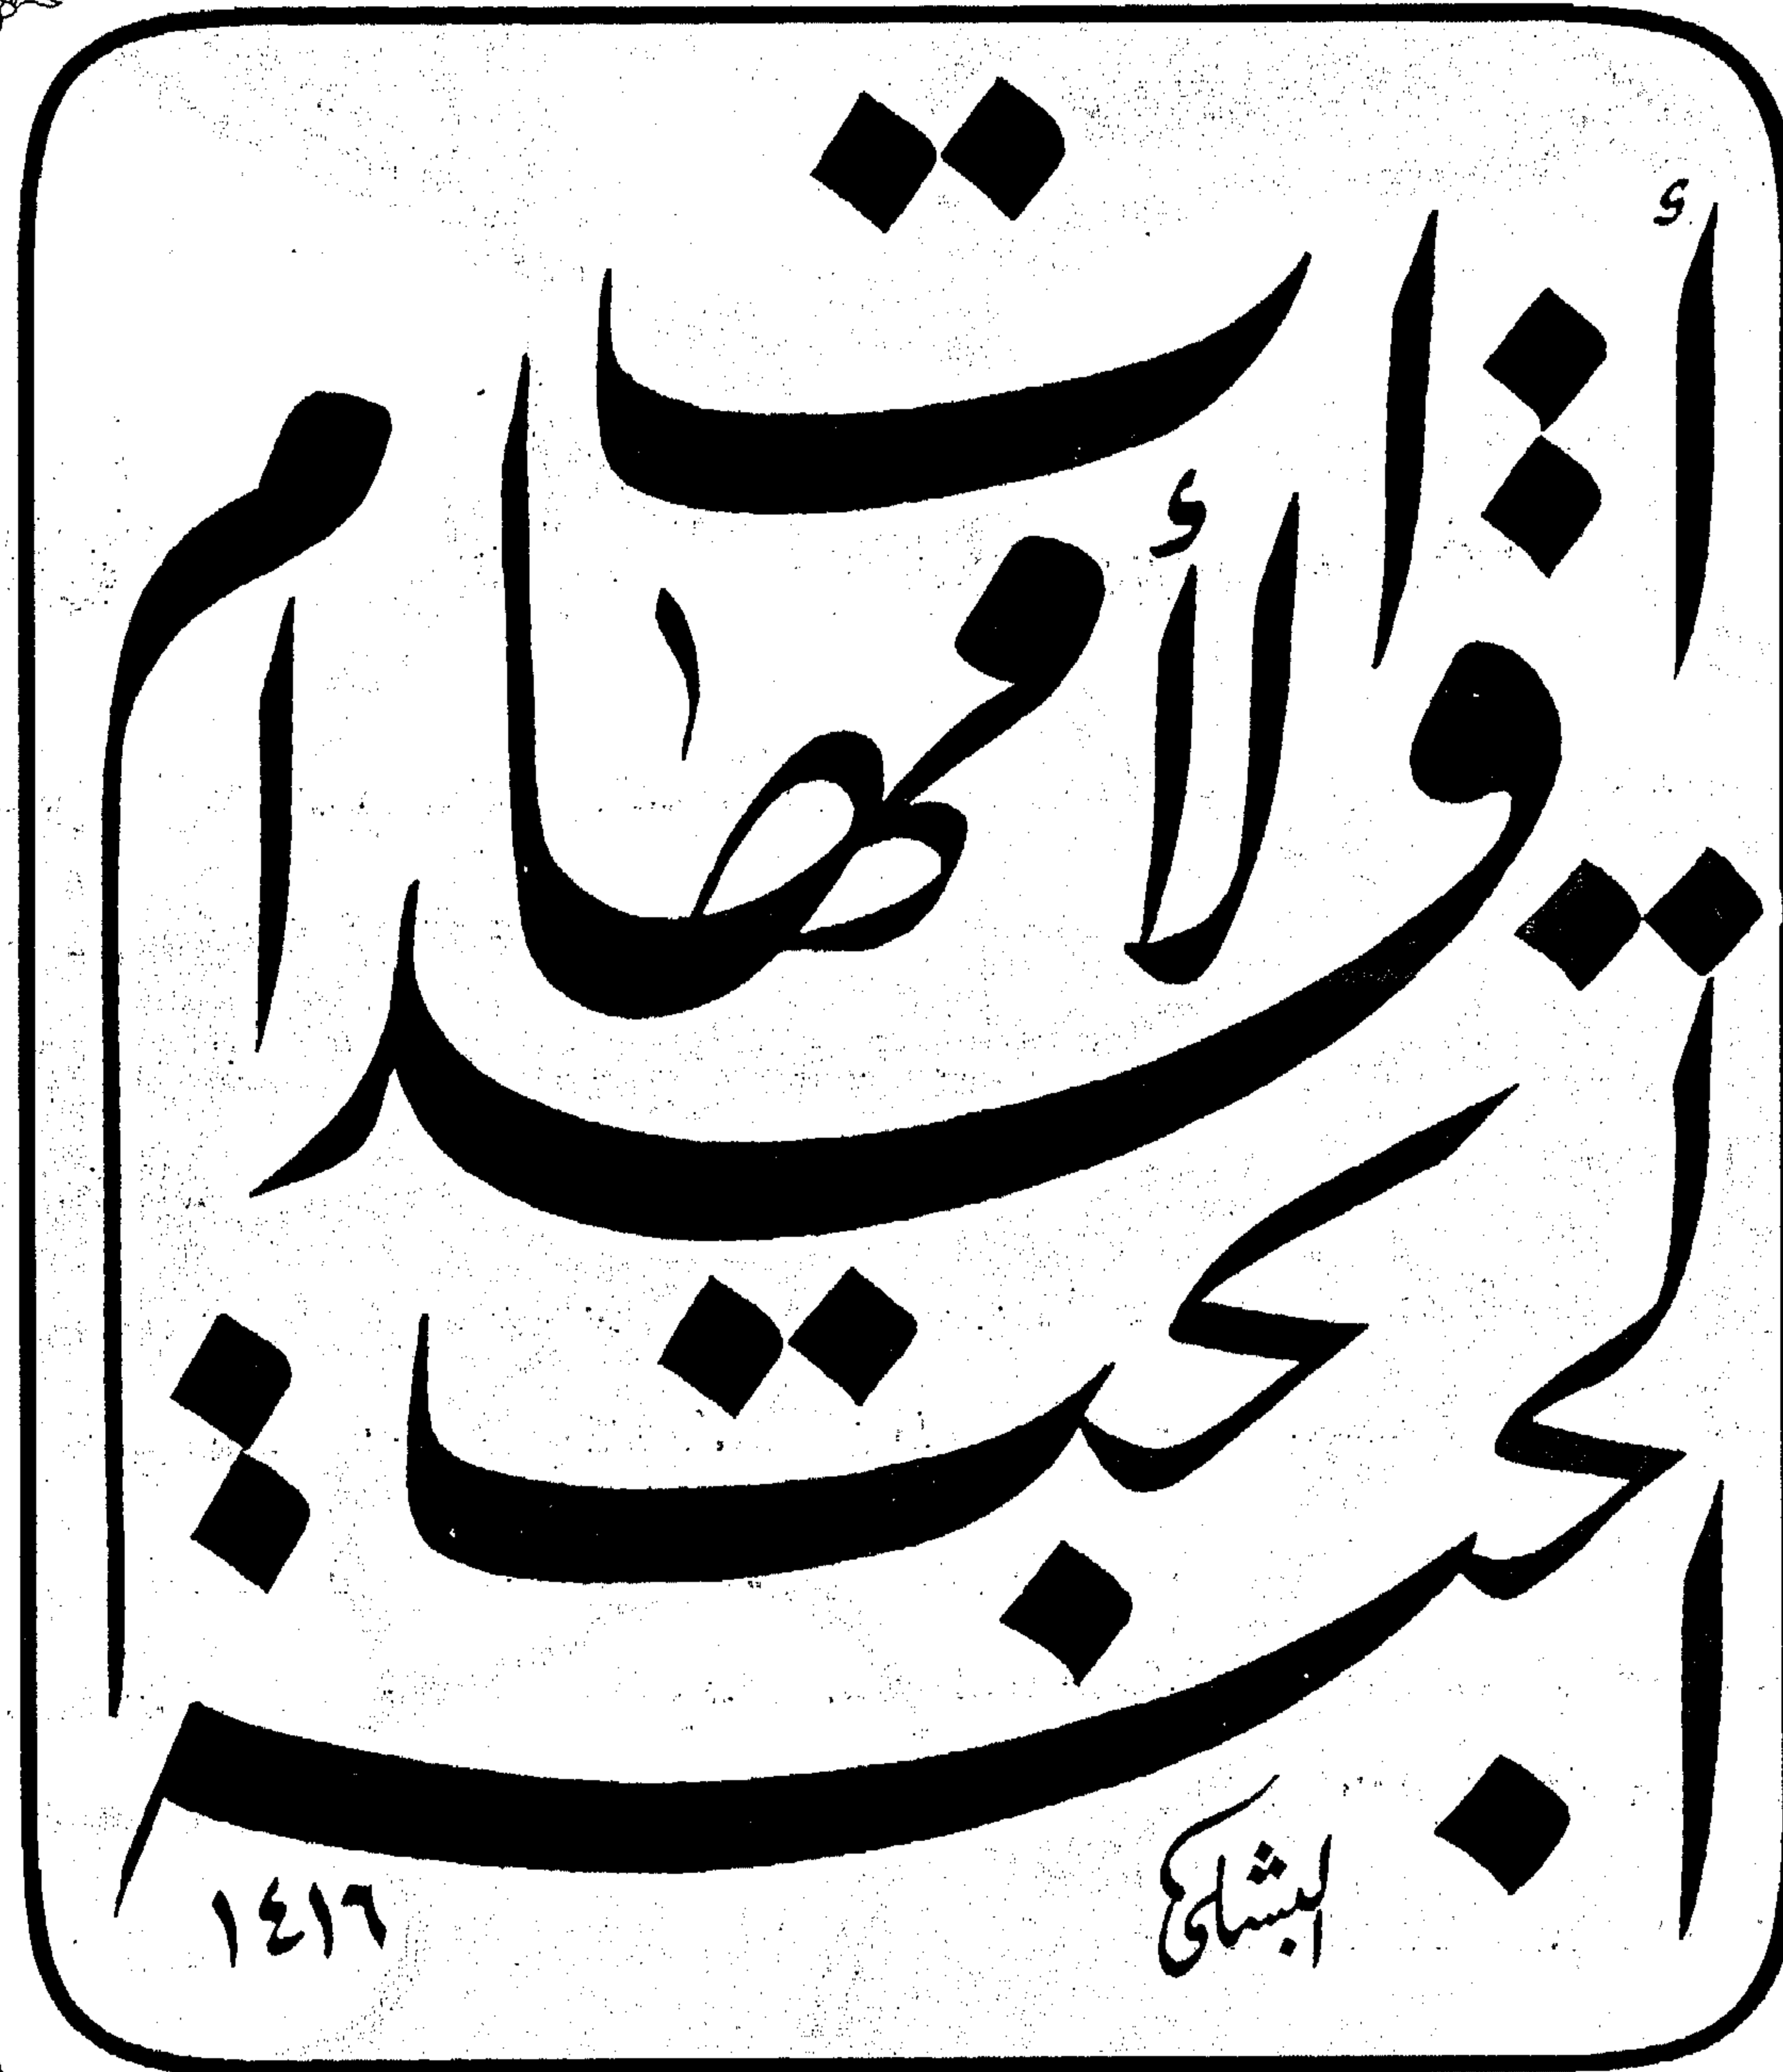 الجنة
تحت
أقدام
الأمهات
١٤١٦